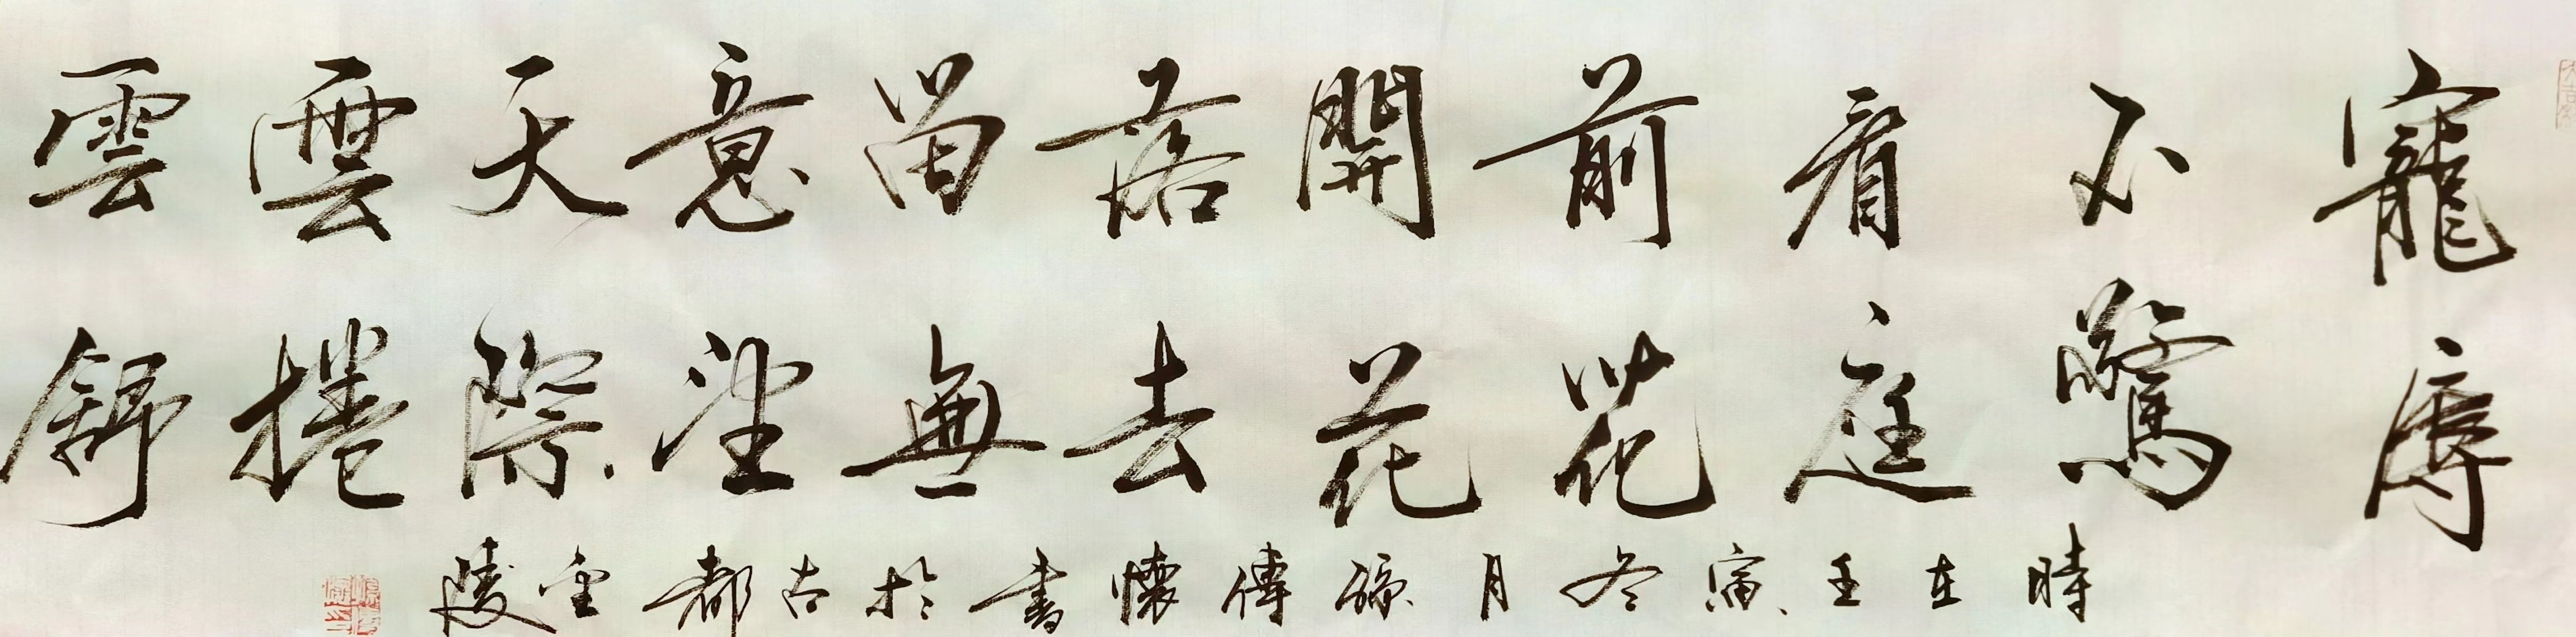 寵辱
不驚
看庭
前花
開花
落去
留無
意望
天際
雲捲
雲舒
時在壬寅冬月孫傳懷書於古都金陵